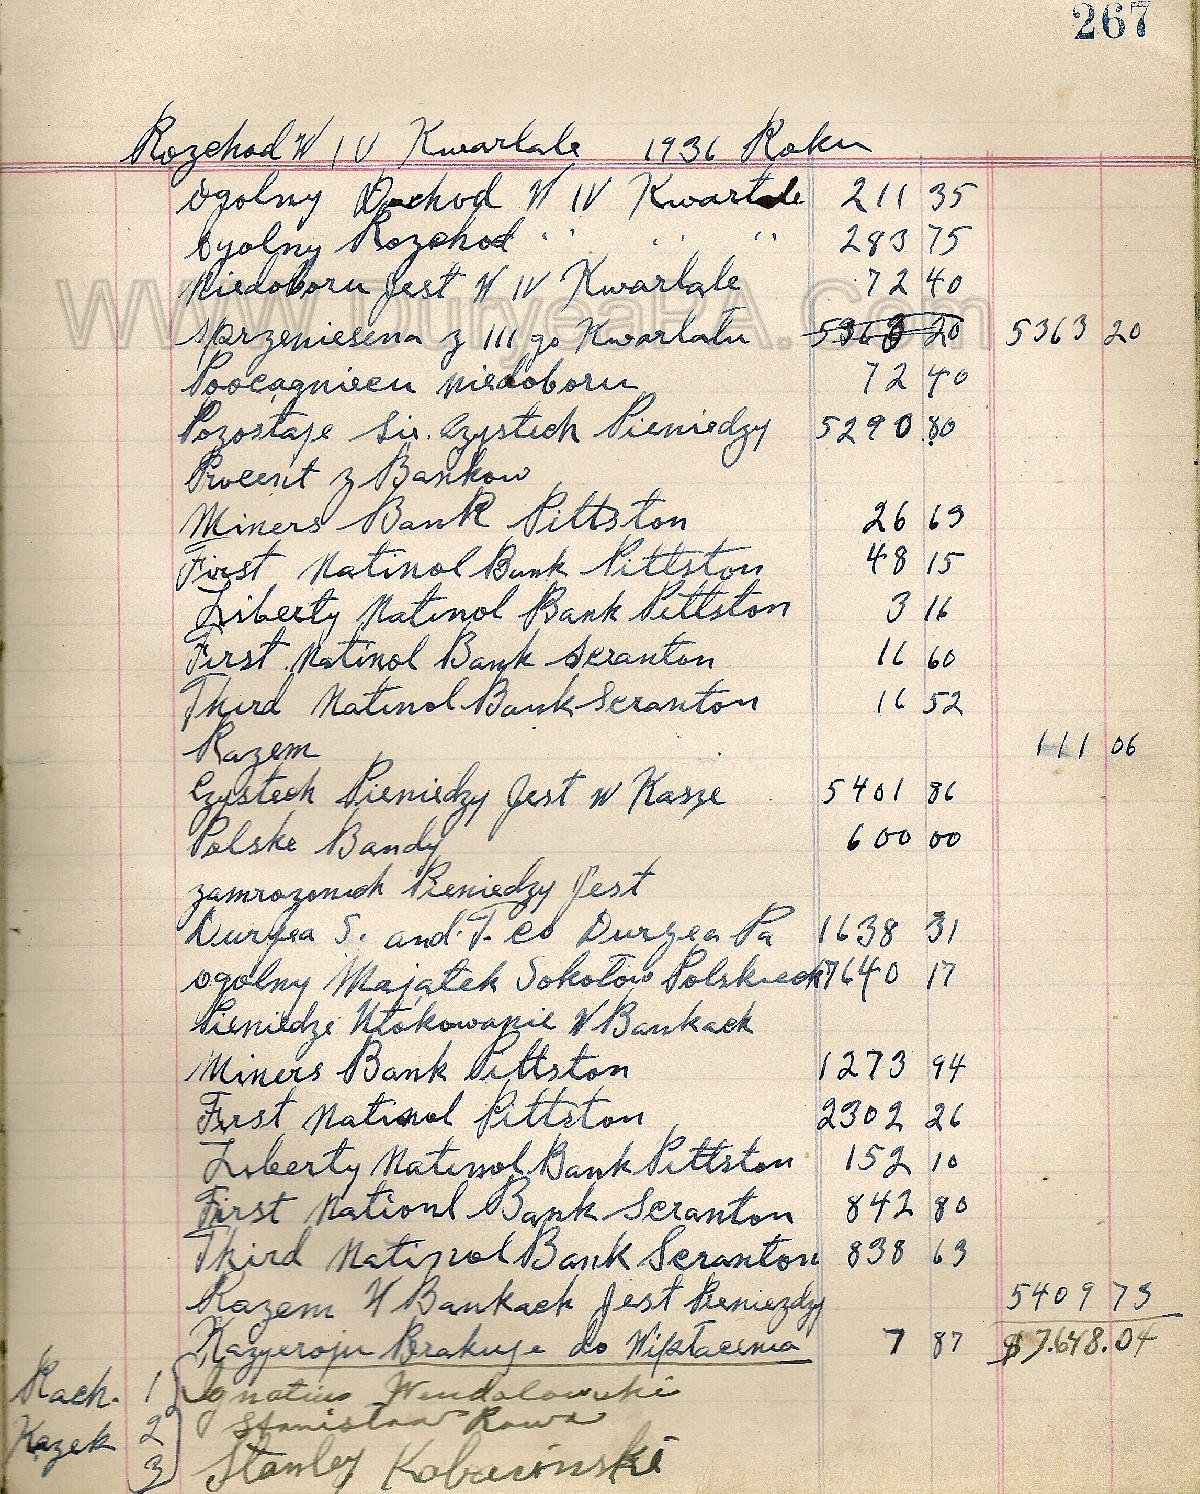 267
Rozchod W IV Kwartale 1936 Roku
Ogolny Dochod W IV Kwartale 211 35
Ogolny Rozchod " " " 283 75
Niedoboru Jest W IV Kwartale 72 40
sprzeniesena z III go Kwartatu 5363 20 5363 20
Poocagniecu niedoboru 72 40
Pozostaje Sie. Czystech Pieniedzy 5290 80
Procent z Bankow
Miners Bank Pittston 26 63
First Natinol Bank Pittston 48 15
Liberty Natinol Bank Pittston 3 16
First Natinol Bank Scranton 16 60
Third Natinol Bank Scranton 16 52
Razem 111 06
Czystech Pieniedzy Jest w Kasze 5401 86
Polske Bandy 600 00
zamrozonech Pieniedzy Jest
Duryea S. and T. Co Duryea Pa 1638 31
ogolny Majatek Sokołow Polskiech 7640 17
Pieniedze Ulokowanie W Bankach
Miners Bank Pittston 1273 94
First Natinol Pittston 2302 26
Liberty Natinol Bank Pittston 152 10
First Nationl Bank Scranton 842 80
Third Natinol Bank Scranton 838 63
Razem W Bankach Jest Pieniezdy 5409 73
Kazyeroju Brakuje do Wipłacenia 7 87 $7.648.04
Rach. 1 Ignatius Wendolowski
Kazek 2 Stanislaw Rawa
3 Stanley
www.DuryeaPA.Com